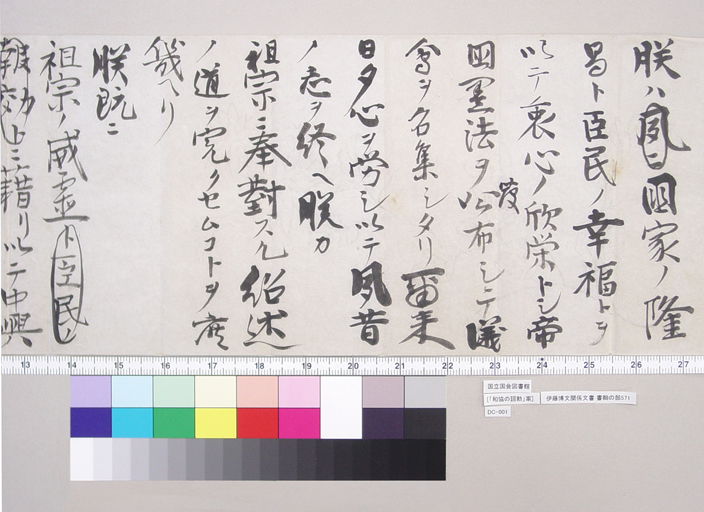 朕ハ夙ニ國家ノ隆
昌ト臣民ノ幸福トヲ
以テ衷心ノ欣栄トシ帝
國憲法ヲ發公布シテ議
會ヲ召集シタリ爾来
日夕心ヲ労シ以テ夙昔
ノ志ヲ終ヘ朕カ
祖宗ニ奉對スル紹述
ノ道ヲ完クセムコトヲ庶
幾ヘリ
朕既ニ
祖宗ノ威霊ト臣民ノ
報効トニ藉リ以テ中興
13 14 15 16 17 18 19 20 21 22 23 24 25 26 27
国立国会図書館
[「和協の詔勅」案] 伊藤博文関係文書 書類の部571
DC-001